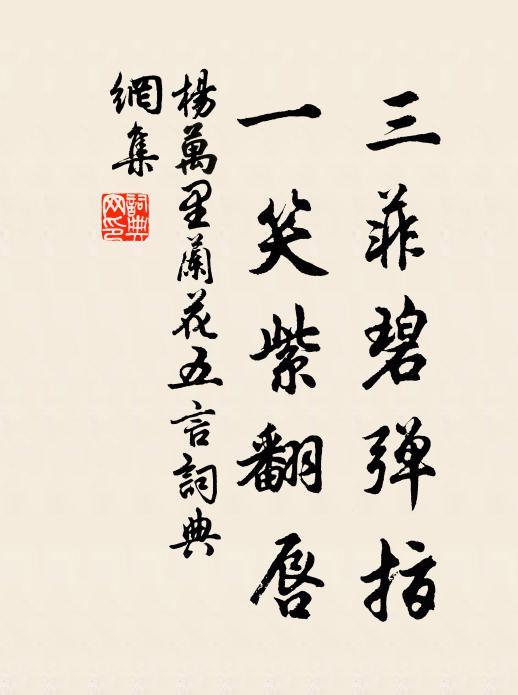 三菲碧弹指
一笑紫翻唇
楊萬里蘭花五言詞典
網集
詞典
网印